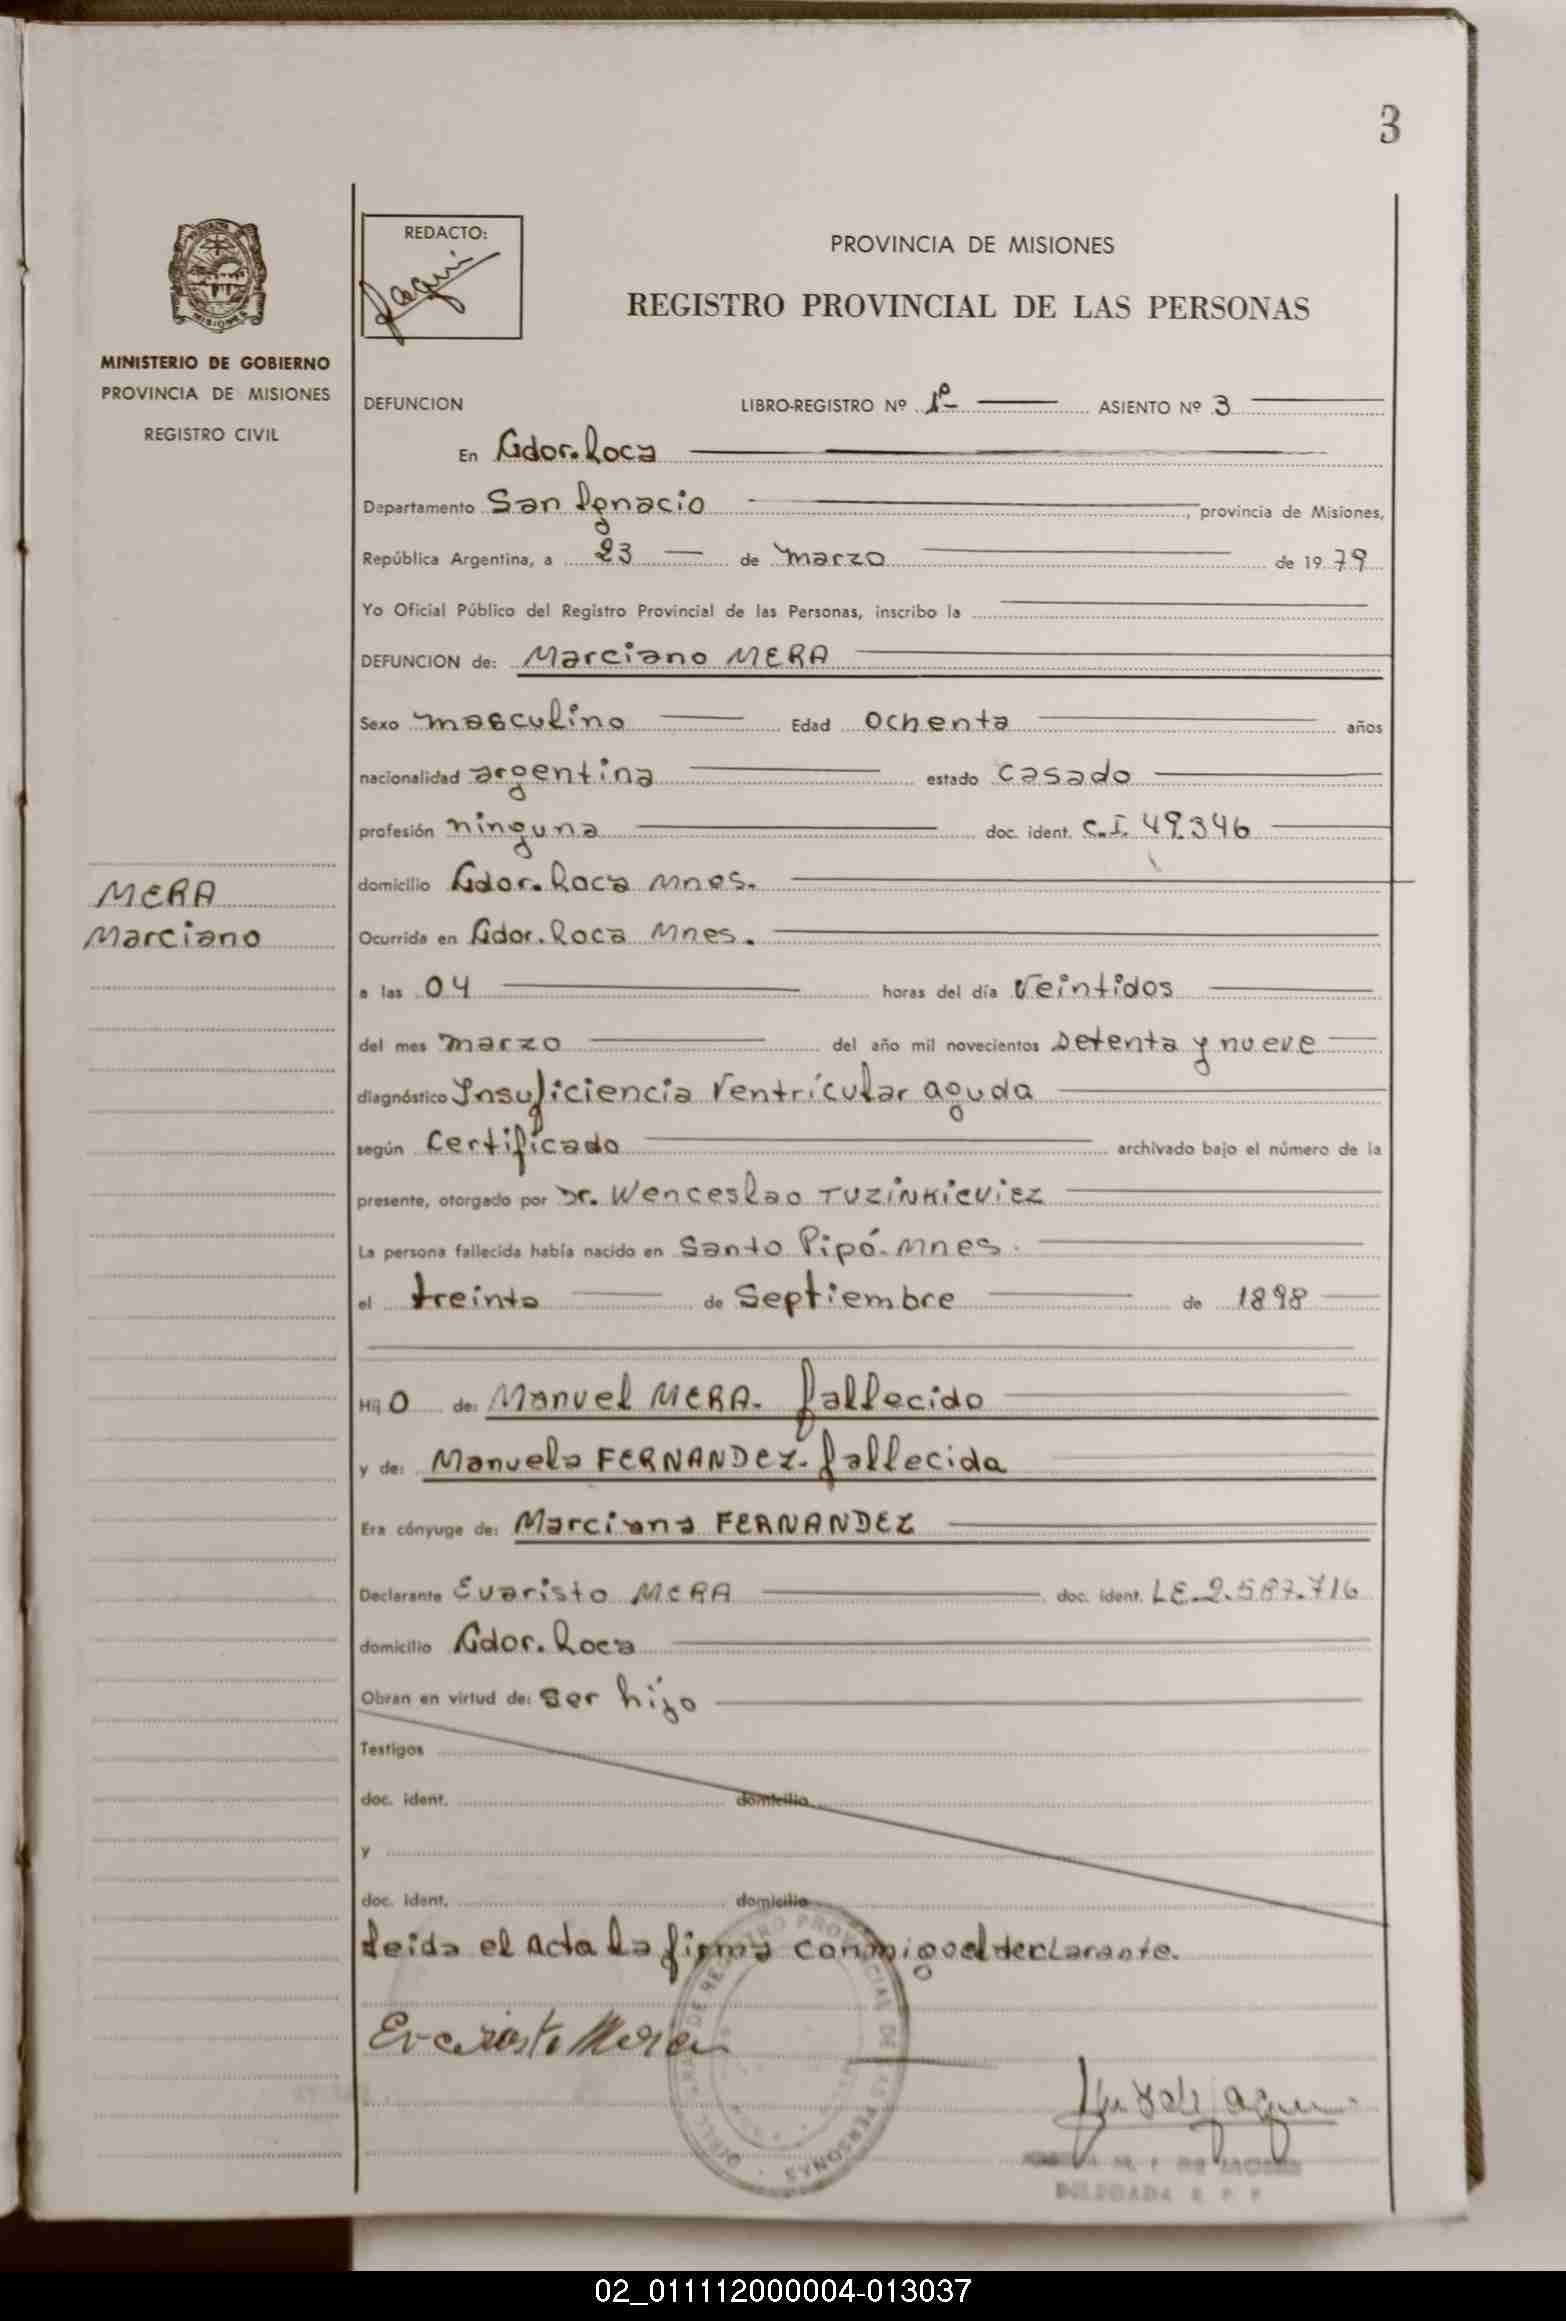 3
REDACTO:
Jaqui
PROVINCIA DE MISIONES
REGISTRO PROVINCIAL DE LAS PERSONAS
MISIONES
MINISTERIO DE GOBIERNO
PROVINCIA DE MISIONES
REGISTRO CIVIL
DEFUNCION LIBRO-REGISTRO Nº 1º ASIENTO Nº 3
En Gdor. Roca
Departamento San Ignacio, provincia de Misiones,
República Argentina, a 23 de marzo de 1979
Yo Oficial Público del Registro Provincial de las Personas, inscribo la
DEFUNCION de: Marciano MERA
Sexo masculino Edad ochenta años
nacionalidad argentina estado casado
profesión ninguna doc. ident. C.I. 49.346
MERA
Marciano
domicilio Gdor. Roca Mnes.
Ocurrida en Gdor. Roca Mnes.
a las 04 horas del día veintidos
del mes marzo del año mil novecientos setenta y nueve
diagnóstico Insuficiencia Ventrícular aguda
según certificado archivado bajo el número de la
presente, otorgado por Dr. Wenceslao TUZINKIEVIEZ
La persona fallecida había nacido en Santo Pipó. Mnes.
el treinta de Septiembre de 1898
Hij o de: Manuel MERA. fallecido
y de: Manuela FERNANDEZ. fallecida
Era cónyuge de: Marciana FERNANDEZ
Declarante Evaristo MERA doc. ident. L.E. 2.587.716
domicilio Gdor. Roca
Obran en virtud de: ser hijo
Testigos
doc. ident. domicilio
y
doc. ident. domicilio
Leida el acta la firma conmigo el declarante.
Evaristo Mera
REGISTRO PROVINCIAL DE LAS PERSONAS
DELEGADA R. P. P.
02_011112000004-013037